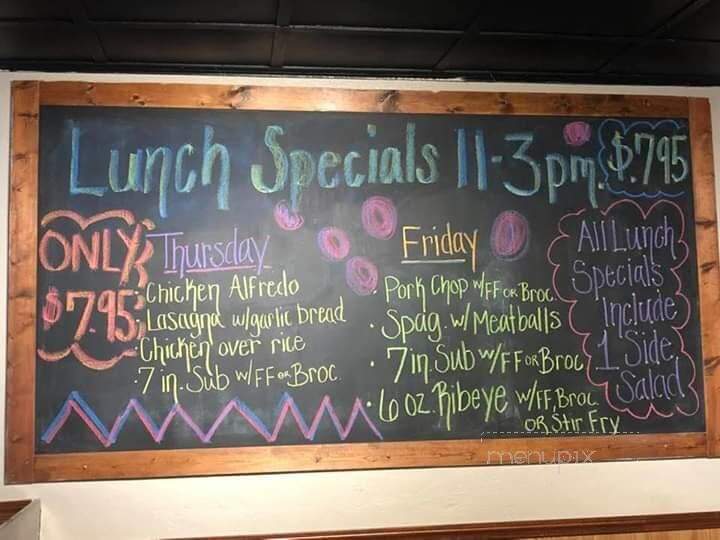 Lunch Specials 11-3pm. $7.95
ONLY
$7.95
Thursday
• Chicken Alfredo
• Lasagna w/garlic bread
• Chicken over rice
• 7 in. Sub w/FF OR Broc.
Friday
• Pork Chop w/FF OR Broc.
• Spag. w/Meatballs
• 7 in. Sub w/FF OR Broc
• 6 oz. Ribeye w/FF, Broc.
OR, Stir Fry
All Lunch
Specials
Include
1 Side
Salad
menupix